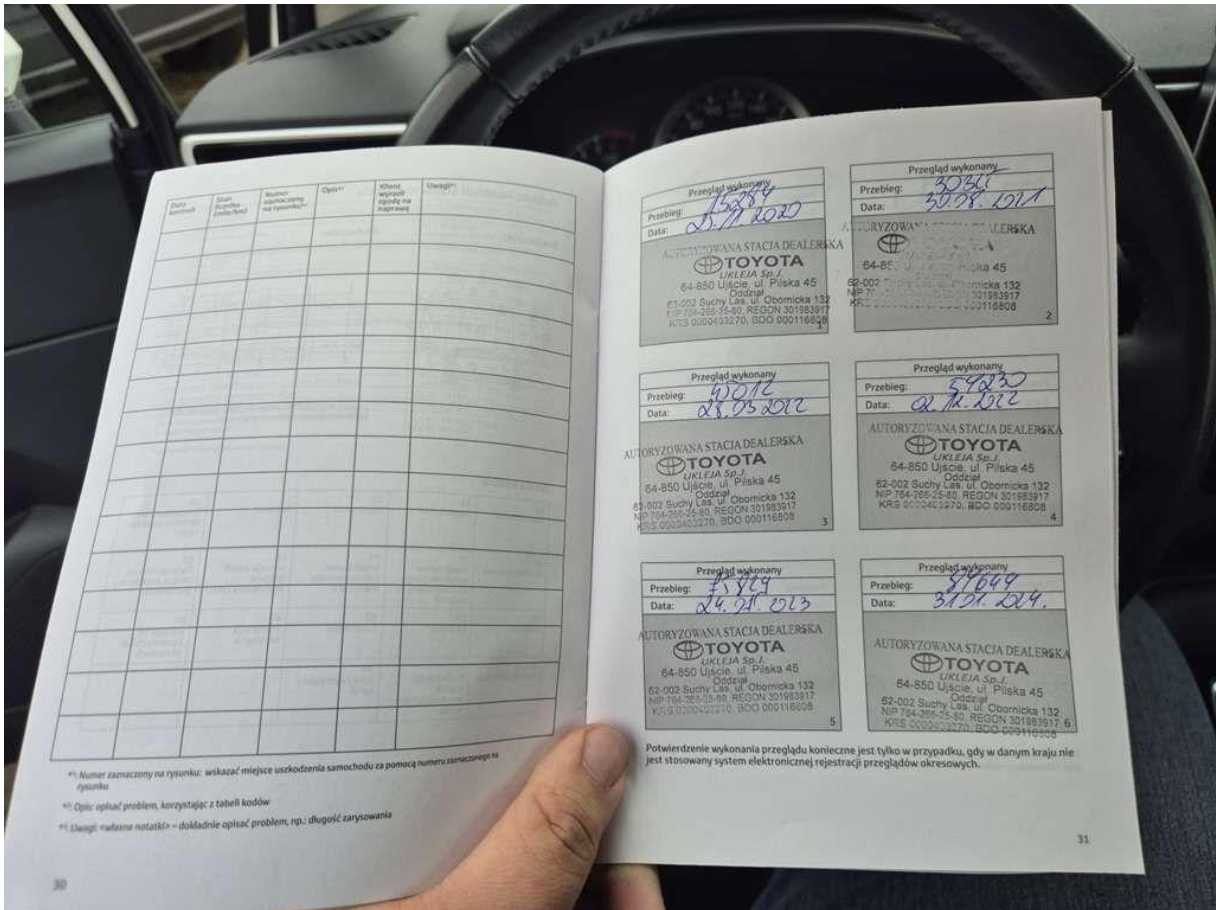 Data kontroli
Stan licznika (mile/km)
Numer zaznaczony na rysunku*¹⁾
Opis*²⁾
Klient wyraził zgodę na naprawę
Uwagi*³⁾
*¹⁾: Numer zaznaczony na rysunku: wskazać miejsce uszkodzenia samochodu za pomocą numeru zaznaczonego na
rysunku
*²⁾: Opis: opisać problem, korzystając z tabeli kodów
*³⁾: Uwagi: <własne notatki> – dokładnie opisać problem, np.: długość zarysowania
30
Przegląd wykonany
Przebieg: 15284
Data: 25.11.2020
AUTORYZOWANA STACJA DEALERSKA
TOYOTA
UKLEJA Sp.J.
64-850 Ujście, ul. Pilska 45
Oddział
62-002 Suchy Las, ul. Obornicka 132
NIP 764-266-25-80, REGON 301983917
KRS 0000403270, BDO 000116808
1
Przegląd wykonany
Przebieg:
Data: 30.08.2021
DEALERSKA
45
62-002 Obornicka 132
301983917
000116808
2
Przegląd wykonany
Przebieg: 45012
Data: 28.03.2022
AUTORYZOWANA STACJA DEALERSKA
TOYOTA
UKLEJA Sp.J.
64-850 Ujście, ul. Pilska 45
Oddział
62-002 Suchy Las, ul. Obornicka 132
NIP 764-266-25-80, REGON 301983917
KRS 0000403270, BDO 000116808
3
Przegląd wykonany
Przebieg: 59230
Data: 02.12.2022
AUTORYZOWANA STACJA DEALERSKA
TOYOTA
UKLEJA Sp.J.
64-850 Ujście, ul. Pilska 45
Oddział
62-002 Suchy Las, ul. Obornicka 132
NIP 764-266-25-80, REGON 301983917
KRS 0000403270, BDO 000116808
4
Przegląd wykonany
Przebieg:
Data:
AUTORYZOWANA STACJA DEALERSKA
TOYOTA
UKLEJA Sp.J.
64-850 Ujście, ul. Pilska 45
Oddział
62-002 Suchy Las, ul. Obornicka 132
NIP 764-266-25-80, REGON 301983917
KRS 0000403270, BDO 000116808
5
Przegląd wykonany
Przebieg: 89649
Data: 31.01.2024.
AUTORYZOWANA STACJA DEALERSKA
TOYOTA
UKLEJA Sp.J.
64-850 Ujście, ul. Pilska 45
Oddział
62-002 Suchy Las, ul. Obornicka 132
NIP 764-266-25-80, REGON 301983917
KRS 0000403270, BDO 000116808
6
Potwierdzenie wykonania przeglądu konieczne jest tylko w przypadku, gdy w danym kraju nie
jest stosowany system elektronicznej rejestracji przeglądów okresowych.
31